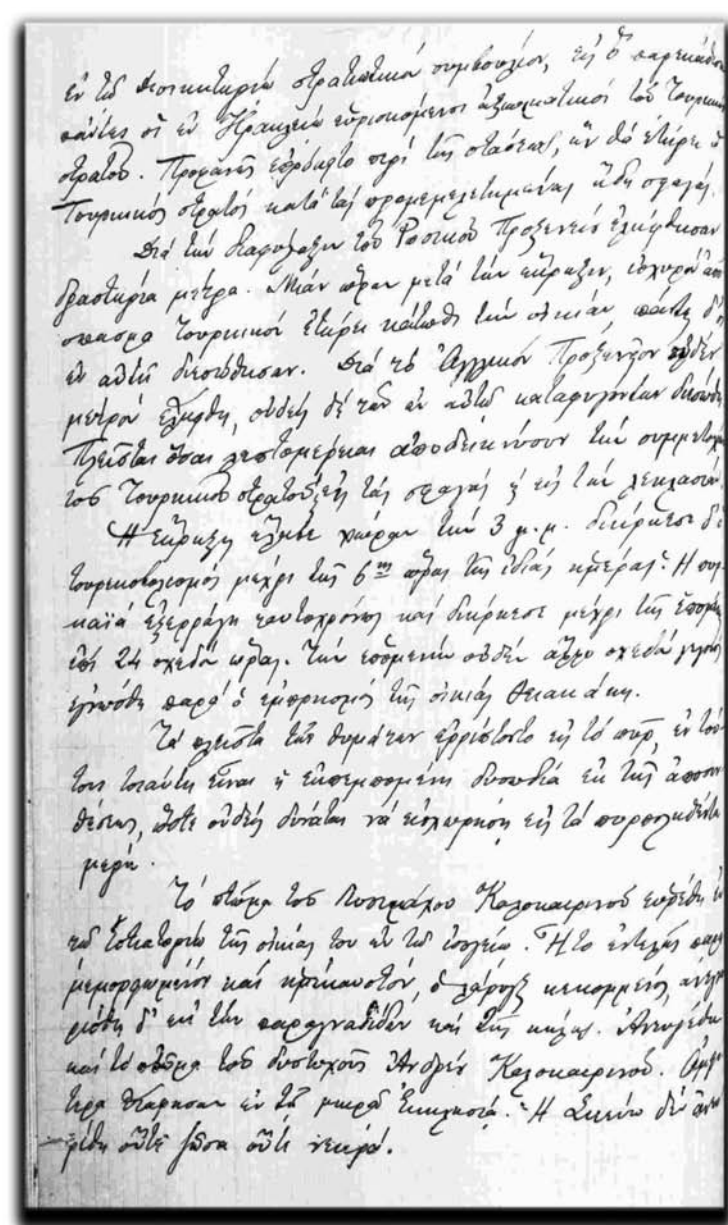 ἐν τῷ Διοικητηρίῳ στρατιωτικὸν συμβούλιον, εἰς ὃ παρεκάθισαν
πάντες οἱ ἐν Ἡρακλείῳ εὑρισκόμενοι ἀξιωματικοὶ τοῦ Τουρκικοῦ
στρατοῦ. Προφανῶς ἐπρόκειτο περὶ τῆς στάσεως, ἣν θὰ ἐτήρει ὁ
Τουρκικὸς στρατὸς κατὰ τὰς προμεμελετημένας ἤδη σφαγάς.
Διὰ τὴν διαφύλαξιν τοῦ Ρωσικοῦ Προξενείου ἐλήφθησαν
δραστήρια μέτρα. Μίαν ὥραν μετὰ τὴν ἔκρηξιν, ἰσχυρὸν ἀπό-
σπασμα Τουρκικὸν ἐτήρει κάτωθι τὴν οἰκίαν, πάντες δ'
ἐν αὐτῇ διεσώθησαν. Διὰ τὸ Ἀγγλικὸν Προξενεῖον οὐδὲν
μέτρον ἐλήφθη, οὐδεὶς δὲ τῶν ἐν αὐτῷ καταφυγόντων διεσώθη
Πλεῖσται ὅσαι λεπτομέρειαι ἀποδεικνύουν τὴν συμμετοχὴν
τοῦ Τουρκικοῦ στρατοῦ εἰς τὰς σφαγὰς ἢ εἰς τὴν λεηλασίαν.
Ἡ ἔκρηξις ἔλαβε χώραν τὴν 3 μ.μ. διήρκεσε δὲ
τουφεκοβολισμὸς μέχρι τῆς 6ης ὥρας τῆς ἰδίας ἡμέρας. Ἡ πυρ-
καϊὰ ἐξερράγη ταυτοχρόνως καὶ διήρκεσε μέχρι τῆς ἑπομένης
ἐπὶ 24 σχεδὸν ὥρας. Τὴν ἑπομένην οὐδὲν ἄλλο σχεδὸν γεγονὸς
ἐγνώσθη παρὰ ὁ ἐμπρησμὸς τῆς οἰκίας Θειακάκη.
Τὰ πλεῖστα τῶν θυμάτων ἐρρίπτοντο εἰς τὸ πῦρ, ἐν τού-
τοις τοιαύτη εἶναι ἡ ἐκπεμπομένη δυσωδία ἐκ τῆς ἀποσυν-
θέσεως, ὥστε οὐδεὶς δύναται νὰ εἰσχωρήσῃ εἰς τὰ πυρποληθέντα
μέρη.
Τὸ πτῶμα τοῦ Λυσιμάχου Καλοκαιρινοῦ εὑρέθη ἐν
τῷ Ἑστιατορίῳ τῆς οἰκίας του ἐν τῷ ἰσογείῳ. Ἦτο ἐντελῶς παρα-
μεμορφωμένον καὶ ἡμίκαυστον, ὁ λάρυγξ κεκομμένος, ἀνεγνω-
ρίσθη δ' ἐκ τῶν παραγναθίδων καὶ τῆς κήλης. Ἀνευρέθη
καὶ τὸ πτῶμα τοῦ δυστυχοῦς Ἀνδρέα Καλοκαιρινοῦ. Ἀμφό-
τερα ἐτάφησαν ἐν τῇ μικρᾷ Ἐκκλησίᾳ. Ἡ δὲν ἀνευ-
ρέθη οὔτε ζῶσα οὔτε νεκρά.